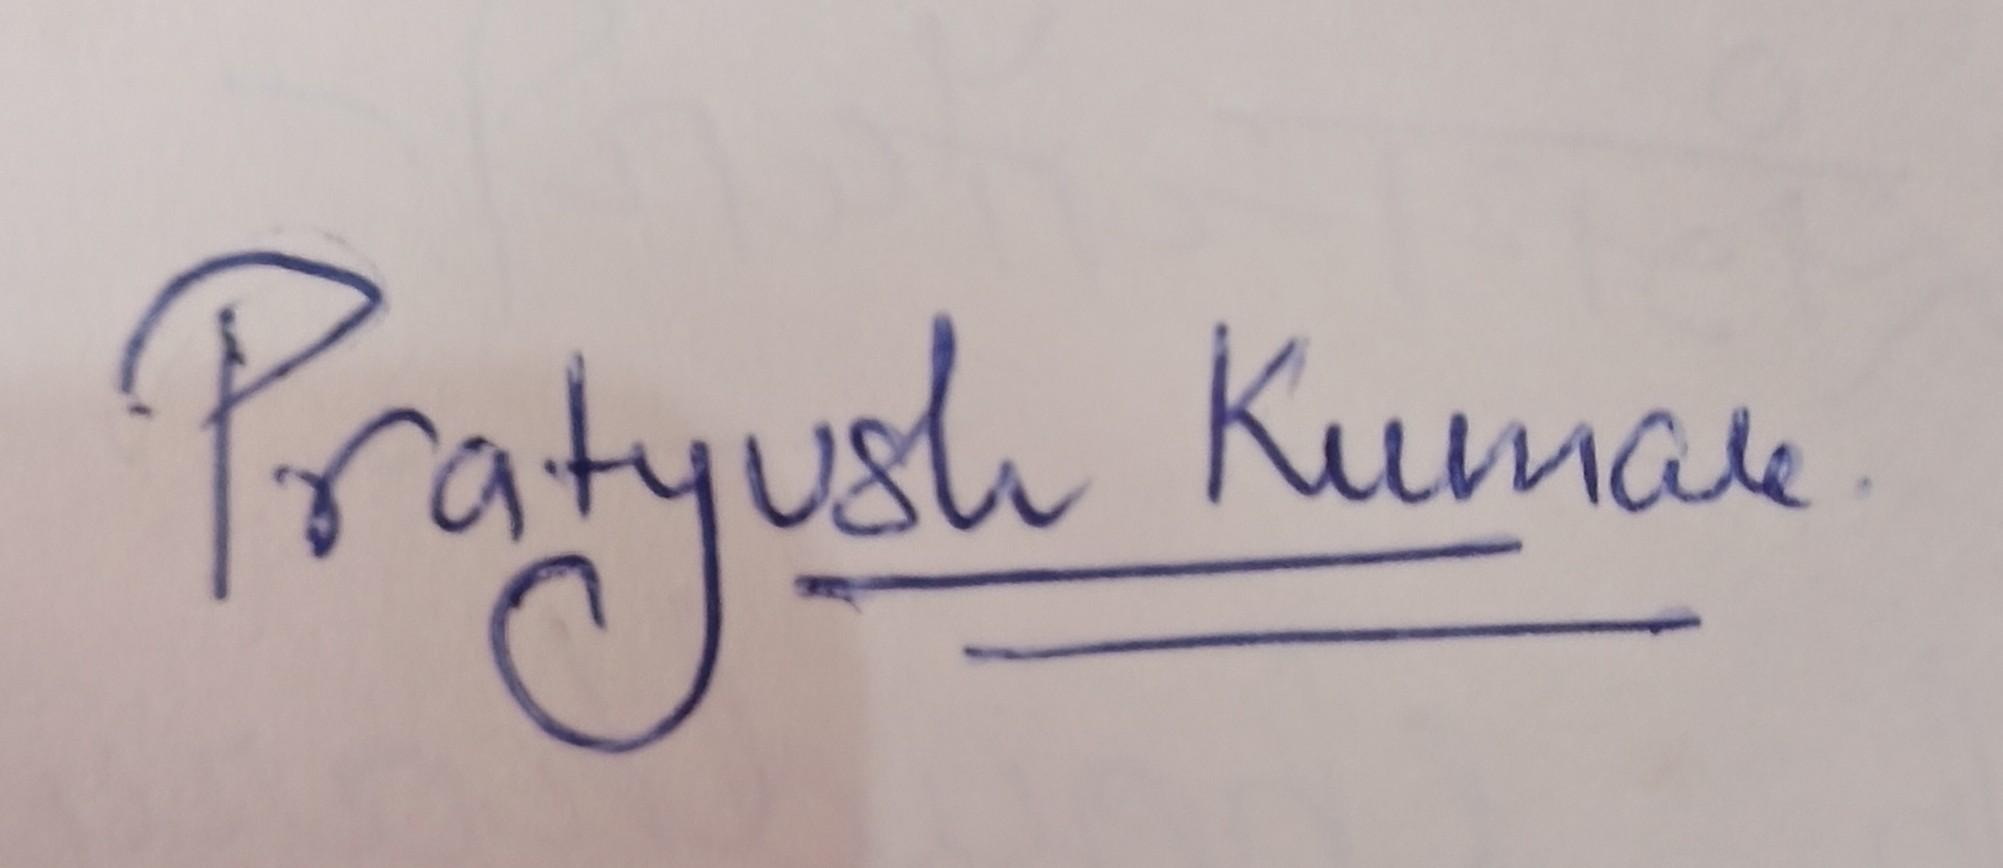 Pratyush Kumar.